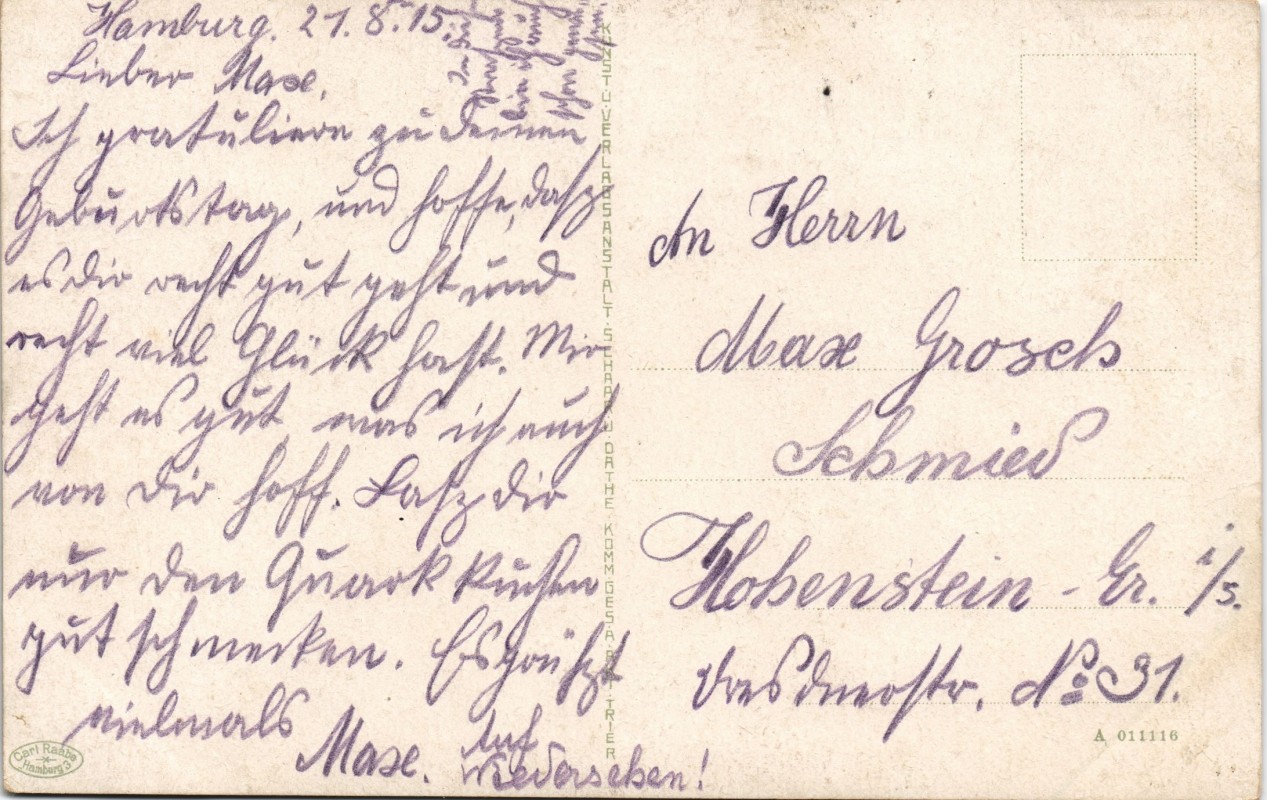 Hamburg. 21.8.15.
Lieber Maxe.
Ich gratuliere zu Deinen
Geburtstag, und hoffe, dasz
es dir recht gut geht und
recht viel Glück hast. Mir
geht es gut, was ich auch
von Dir hoff. Lasz dir
nur den Quarkkuchen
gut schmecken. Es grüszt
vielmals
Maxe. Auf
Wiedersehen!
KUNST U. VERLAGSANSTALT SCHAAR U. DATHE KOMM.GES.A.A. TRIER
An Herrn
Max Grosch
Schmied
Hohenstein-Er. i/s.
Dresdnerstr. No 31.
A 011116
Carl Raabe
Hamburg 3